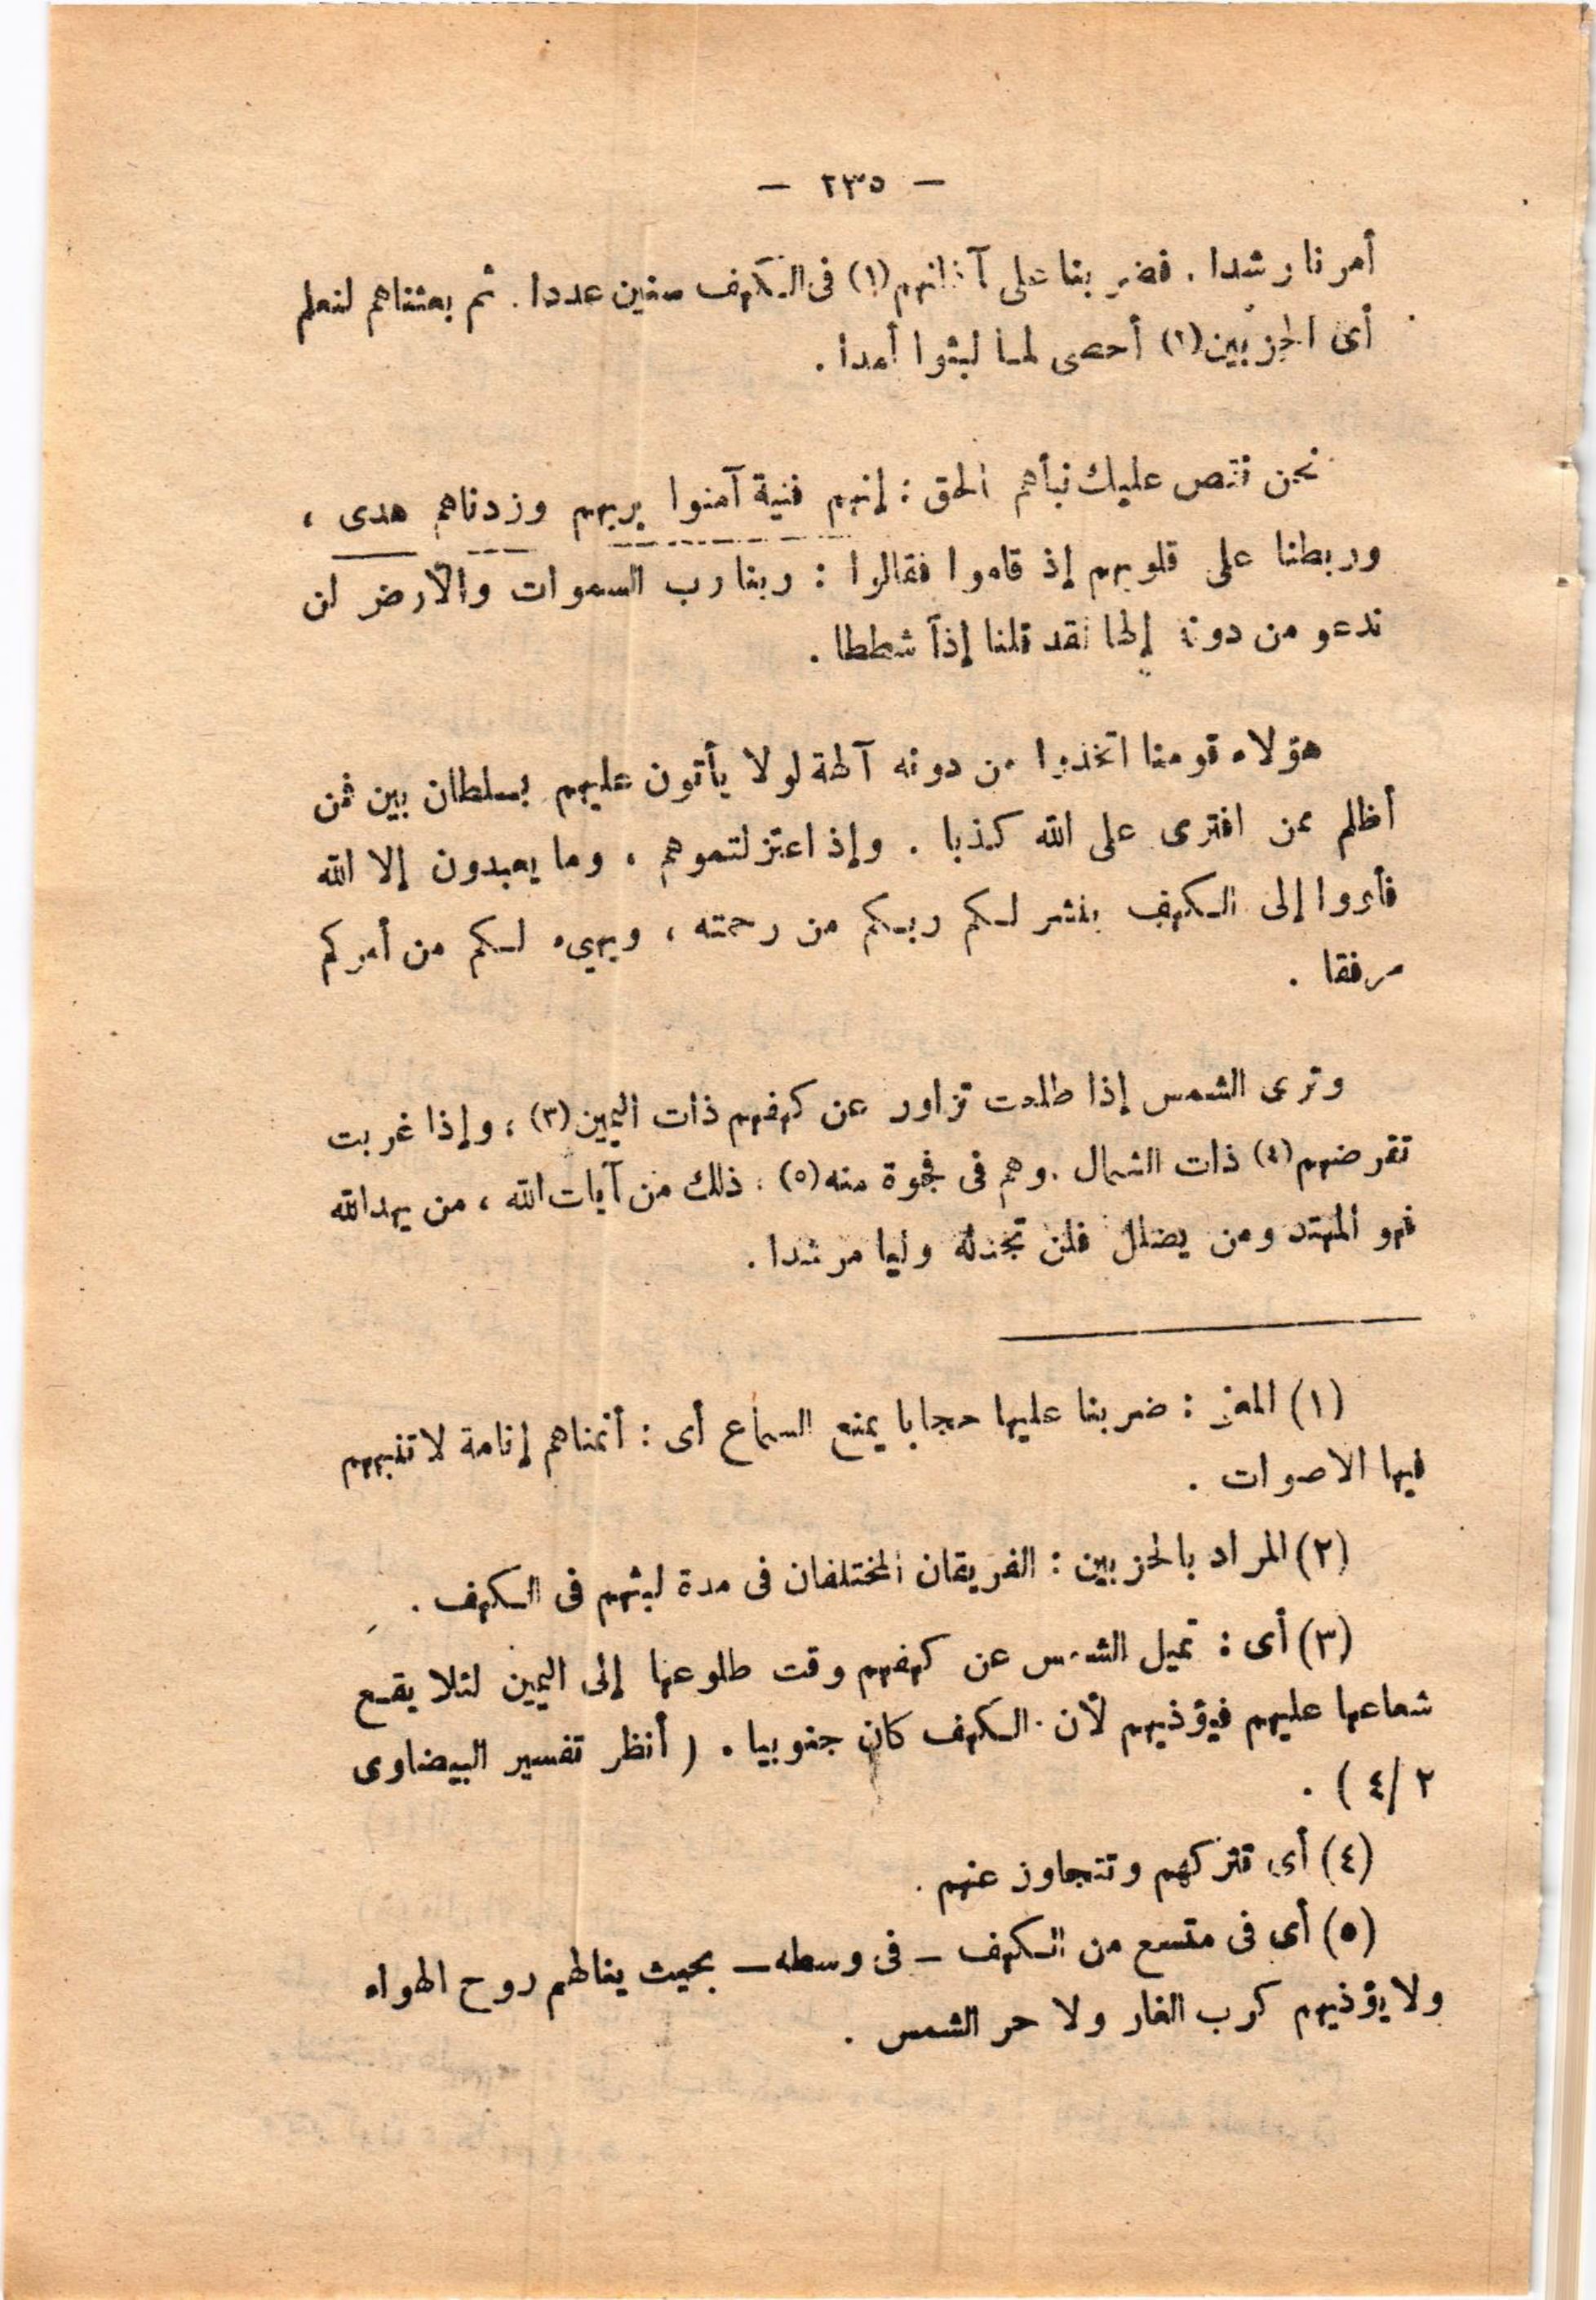 — ٢٣٥ —
أمرنا رشدا . فضربنا على آذانهم (١) فى الكهف سنين عددا . ثم بعثناهم لنعلم
أى الحزبين (١) أحصى لما لبثوا أمدا .
نحن نقص عليك نبأهم الحق : إنهم فتية آمنوا بربهم وزدناهم هدى ،
وربطنا على قلوبهم إذ قاموا فقالوا : ربنا رب السموات والأرض لن
ندعو من دونه إلها لقد قلنا إذاً شططا .
هؤلاء قومنا اتخذوا من دونه آلهة لولا يأتون عليهم بسلطان بين فمن
أظلم ممن افترى على الله كذبا . وإذ اعتزلتموهم ، وما يعبدون إلا الله
فأووا إلى الكهف ينشر لكم ربكم من رحمته ، ويهيء لكم من أمركم
مرفقا .
وترى الشمس إذا طلعت تزاور عن كهفهم ذات اليمين (٣) ، وإذا غربت
تقرضهم (٤) ذات الشمال . وهم فى فجوة منه (٥) ، ذلك من آيات الله ، من يهد الله
فهو المهتد ومن يضلل فلن تجد له وليا مرشدا .
(١) المعنى : ضربنا عليها حجابا يمنع السماع أى : أنمناهم إنامة لا تنبههم
فيها الاصوات .
(٢) المراد بالحزبين : الفريقان المختلفان فى مدة لبثهم فى الكهف .
(٣) أى : تميل الشمس عن كهفهم وقت طلوعها إلى اليمين لئلا يقع
شعاعها عليهم فيؤذيهم لأن الكهف كان جنوبيا . ( أنظر تفسير البيضاوى
٢ /٤ ) .
(٤) أى تتركهم وتتجاوز عنهم .
(٥) أى فى متسع من الكهف – فى وسطه – بحيث ينالهم روح الهواء
ولا يؤذيهم كرب الغار ولا حر الشمس .